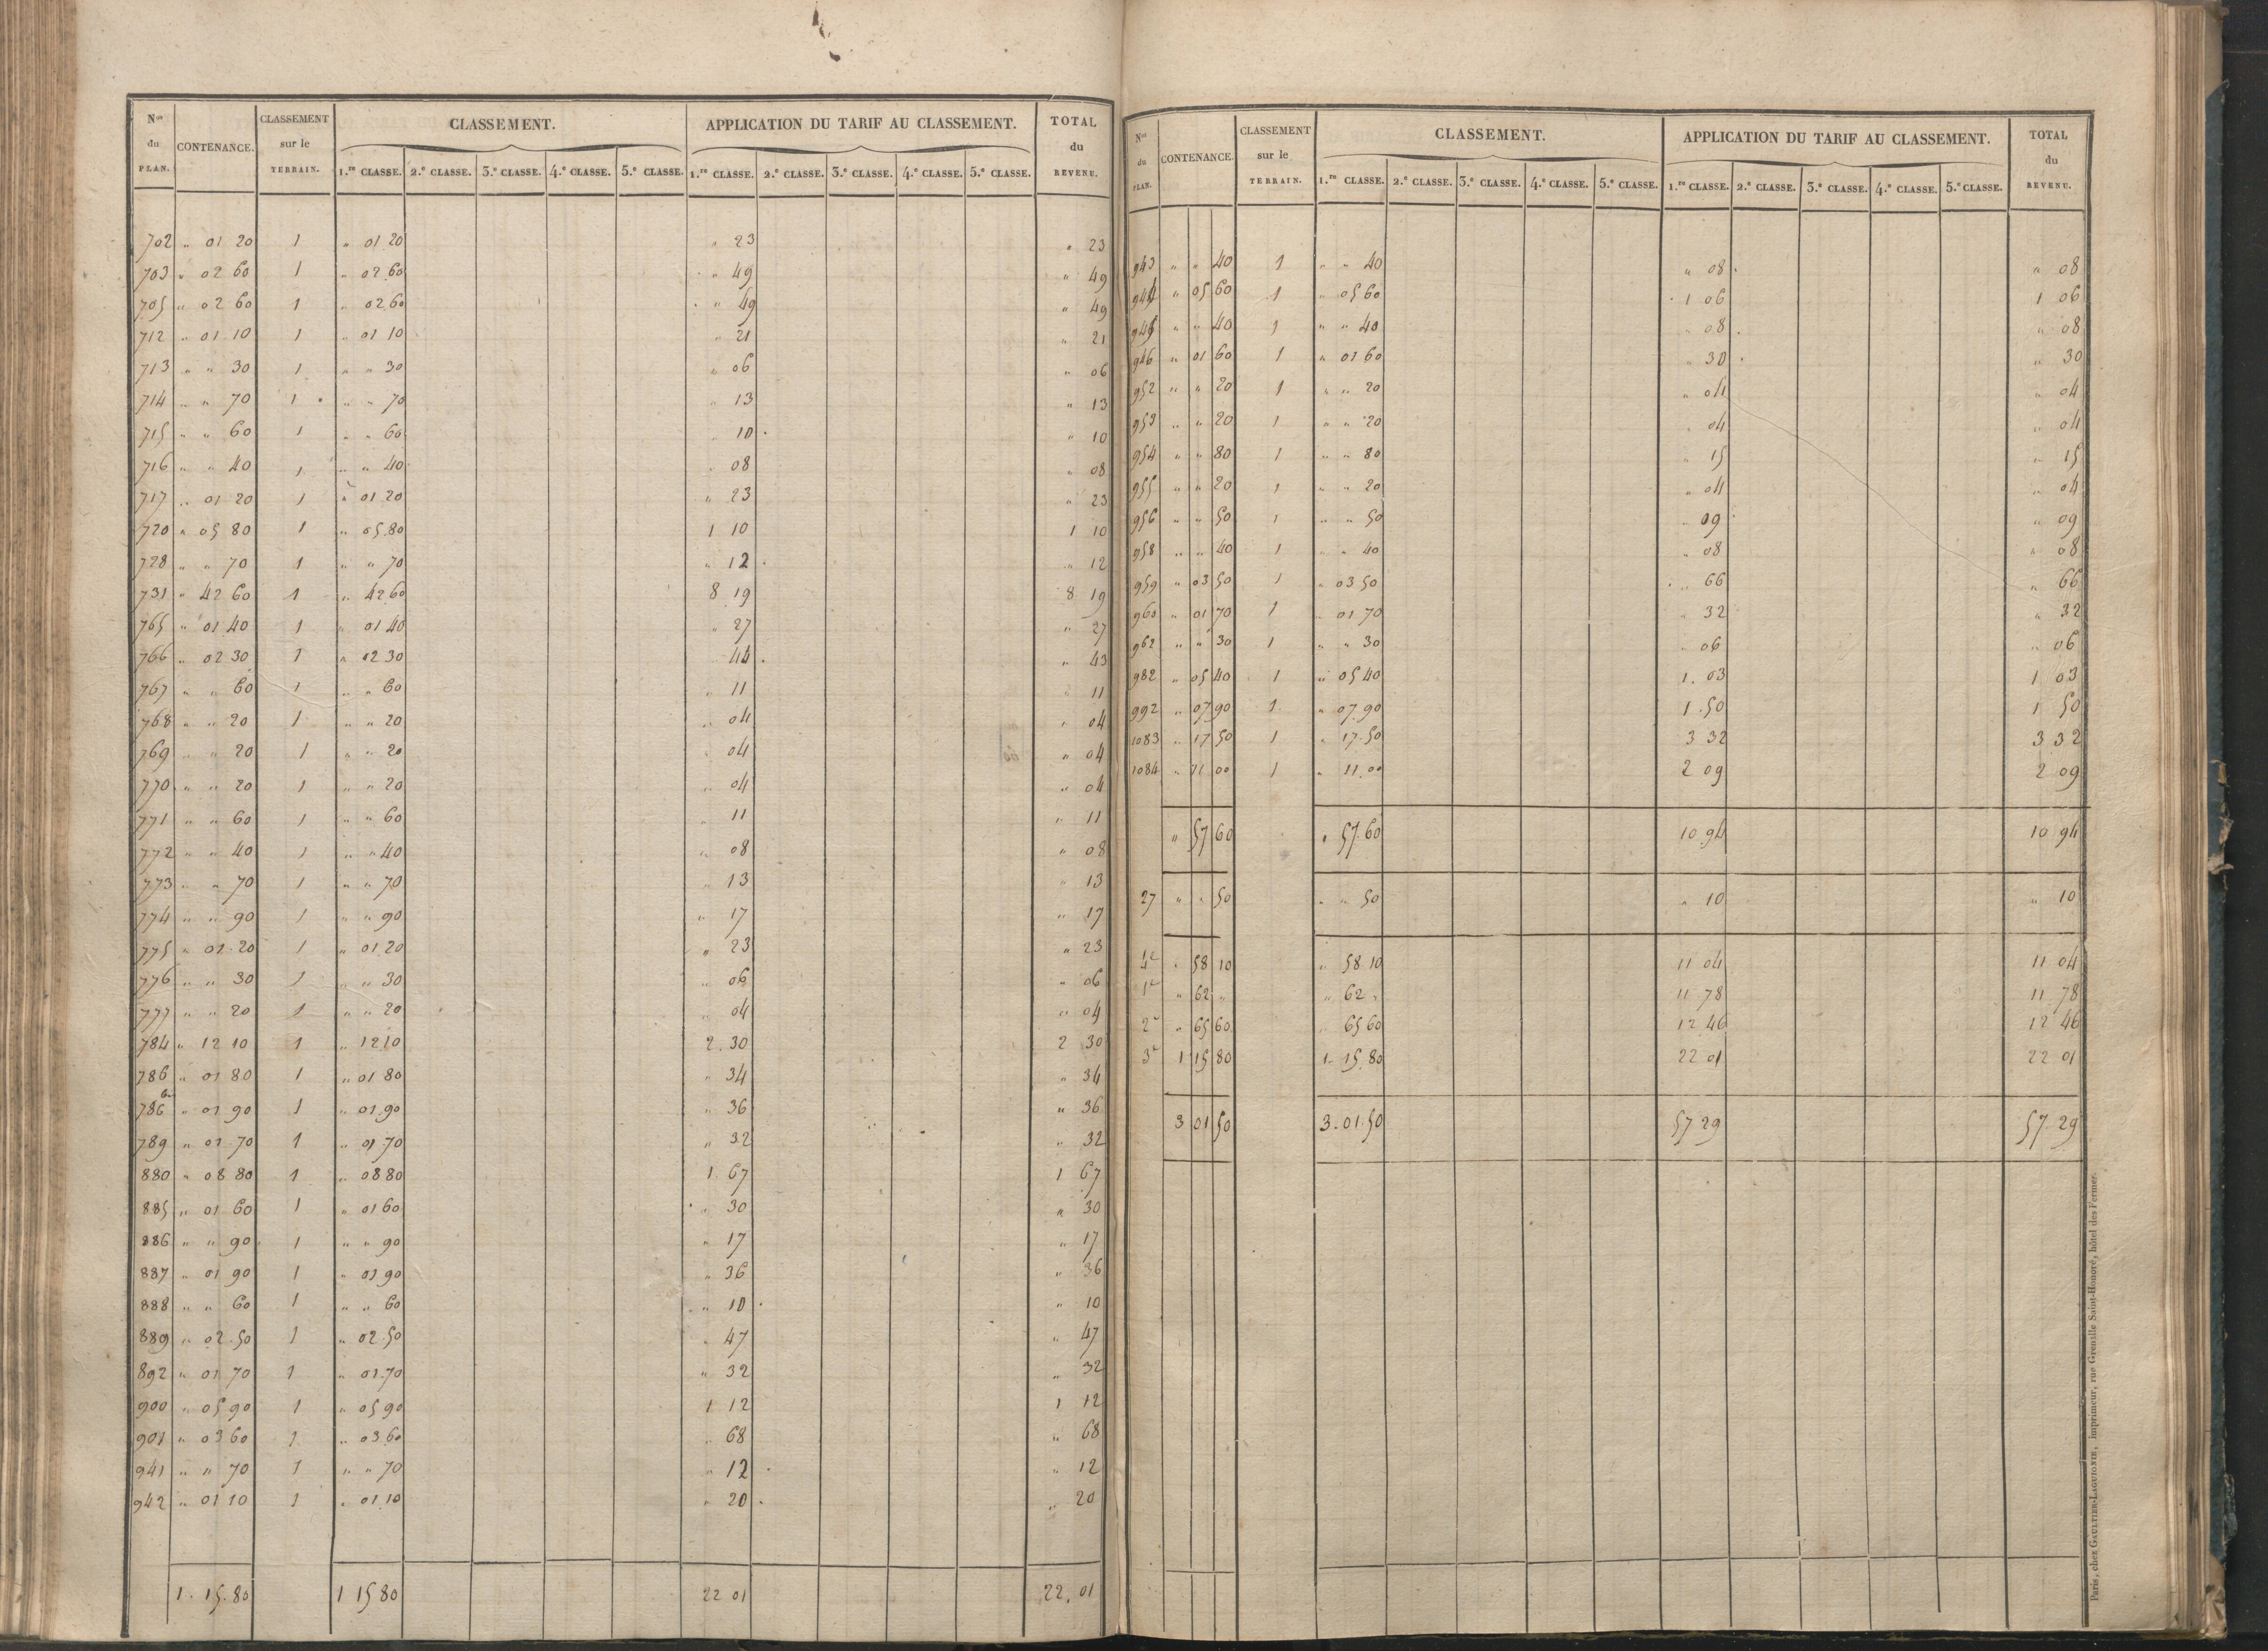 Nos du PLAN. CONTENANCE. CLASSEMENT sur le TERRAIN. CLASSEMENT. APPLICATION DU TARIF AU CLASSEMENT. TOTAL du REVENU.
1.re CLASSE. 2.e CLASSE. 3.e CLASSE. 4.e CLASSE. 5.e CLASSE. 1.re CLASSE. 2.e CLASSE. 3.e CLASSE. 4.e CLASSE. 5.e CLASSE.
702 " 01 20 1 " 01 20 " 23 " 23
703 " 02 60 1 " 02 60 " 49 " 49
705 " 02 60 1 " 02 60 " 49 " 49
712 " 01 10 1 " 01 10 " 21 " 21
713 " " 30 1 " " 30 " 06 " 06
714 " " 70 1 " " 70 " 13 " 13
715 " " 60 1 " " 60 " 10 " 10
716 " " 40 1 " " 40 " 08 " 08
717 " 01 20 1 " 01 20 " 23 " 23
720 " 05 80 1 " 05 80 1 10 1 10
728 " " 70 1 " " 70 " 12 " 12
731 " 42 60 1 " 42 60 8 19 8 19
765 " 01 40 1 " 01 40 " 27 " 27
766 " 02 30 1 " 02 30 44 " 43
767 " " 60 1 " " 60 " 11 " 11
768 " " 20 1 " " 20 " 04 " 04
769 " " 20 1 " " 20 " 04 " 04
770 " " 20 1 " " 20 " 04 " 04
771 " " 60 1 " " 60 " 11 " 11
772 " " 40 1 " " 40 " 08 " 08
773 " " 70 1 " " 70 " 13 " 13
774 " " 90 1 " " 90 " 17 " 17
775 " 01 20 1 " 01 20 " 23 " 23
776 " " 30 1 " " 30 " 06 " 06
777 " " 20 1 " " 20 " 04 " 04
784 " 12 10 1 " 12 10 2.30 2 30
786 " 01 80 1 " 01 80 " 34 " 34
786 bis " 01 90 1 " 01 90 " 36 " 36
789 " 01 70 1 " 01 70 " 32 " 32
880 " 08 80 1 " 08 80 1 67 1 67
885 " 01 60 1 " 01 60 " 30 " 30
886 " " 90 1 " " 90 " 17 " 17
887 " 01 90 1 " 01 90 " 36 " 36
888 " " 60 1 " " 60 " 10 " 10
889 " 02 50 1 " 02 50 " 47 " 47
892 " 01 70 1 " 01 70 " 32 " 32
900 " 05 90 1 " 05 90 1 12 1 12
901 " 03 60 1 " 03 60 " 68 " 68
941 " " 70 1 " " 70 " 12 " 12
942 " 01 10 1 " 01 10 " 20 " 20
1.15.80 1 15 80 22 01 22.01
Nos du PLAN. CONTENANCE. CLASSEMENT sur le TERRAIN. CLASSEMENT. APPLICATION DU TARIF AU CLASSEMENT. TOTAL du REVENU.
1.re CLASSE. 2.e CLASSE. 3.e CLASSE. 4.e CLASSE. 5.e CLASSE. 1.re CLASSE. 2.e CLASSE. 3.e CLASSE. 4.e CLASSE. 5.e CLASSE.
943 " " 40 1 " " 40 " 08 " 08
944 " 05 60 1 " 05 60 1 06 1 06
945 " " 40 1 " " 40 " 08 " 08
946 " 01 60 1 " 01 60 " 30 " 30
952 " " 20 1 " " 20 " 04 " 04
953 " " 20 1 " " 20 " 04 " 04
954 " " 80 1 " " 80 " 15 " 15
955 " " 20 1 " " 20 " 04 " 04
956 " " 50 1 " " 50 " 09 " 09
958 " " 40 1 " " 40 " 08 " 08
959 " 03 50 1 " 03 50 " 66 " 66
960 " 01 70 1 " 01 70 " 32 " 32
962 " " 30 1 " " 30 " 06 " 06
982 " 05 40 1 " 05 40 1.03 1 03
992 " 07 90 1 " 07.90 1.50 1 50
1083 " 17 50 1 " 17.50 3 32 3 32
1084 " 11 00 1 " 11.00 2 09 2 09
" 57 60 " 57.60 10 94 10 94
27 " " 50 " " 50 " 10 " 10
4e " 58 10 " 58 10 11 04 11 04
1e " 62 " " 62 " 11 78 11 78
2e " 65 60 " 65 60 12 46 12 46
3e 1 15 80 1 15 80 22 01 22 01
3 01 50 3.01.50 57 29 57.29
Paris, chez GAULTIER-LAGUIONIE, imprimeur, rue Grenelle Saint-Honoré, hôtel des Fermes.